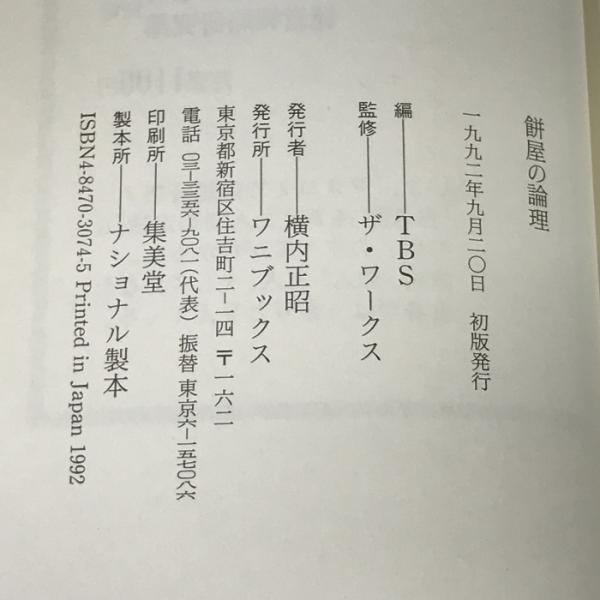 餅屋の論理
一九九二年九月二〇日　初版発行
編――TBS
監修――ザ・ワークス
発行者――横内正昭
発行所――ワニブックス
東京都新宿区住吉町二−一四 〒一六二
電話 〇三−三三五六−九〇八一（代表） 振替 東京六−一五七〇八六
印刷所――集美堂
製本所――ナショナル製本
ISBN4-8470-3074-5 Printed in Japan 1992